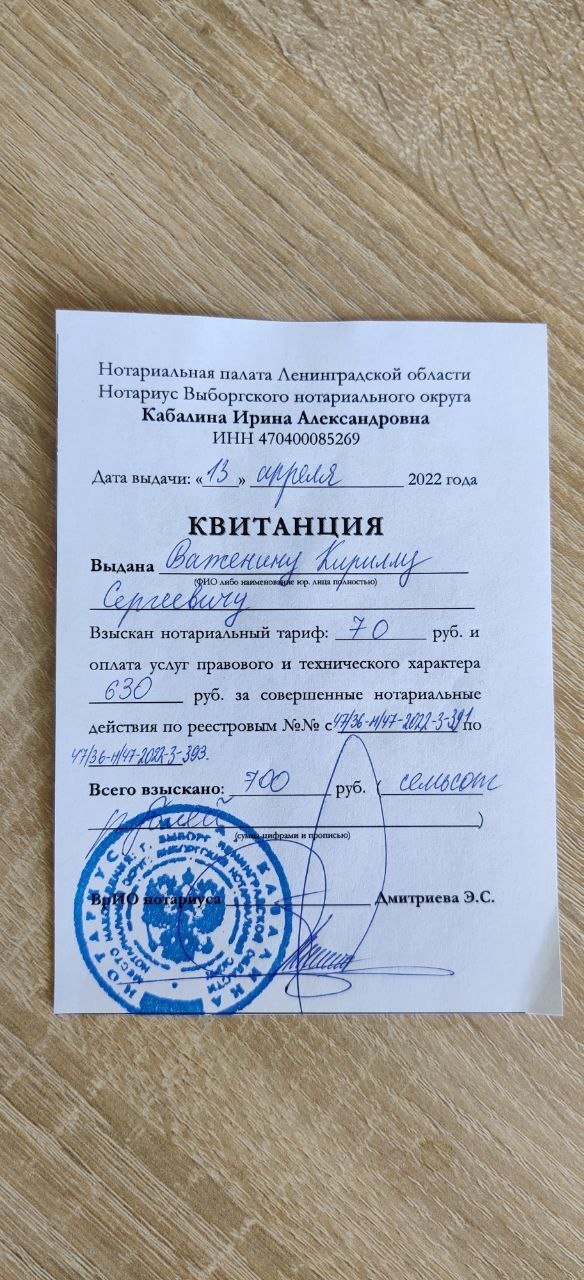 Нотариальная палата Ленинградской области
Нотариус Выборгского нотариального округа
Кабалина Ирина Александровна
ИНН 470400085269
Дата выдачи: «13» апреля 2022 года
КВИТАНЦИЯ
Выдана Важенину Кириллу
(ФИО либо наименование юр. лица полностью)
Сергеевичу
Взыскан нотариальный тариф: 70 руб. и
оплата услуг правового и технического характера
630 руб. за совершенные нотариальные
действия по реестровым №№ с 47/36-н/47-2022-3-391 по
47/36-н/47-2022-3-393.
Всего взыскано: 700 руб. (семьсот
рублей)
(сумма цифрами и прописью)
ВрИО нотариуса Дмитриева Э.С.
НОТАРИУС КАБАЛИНА
Г. ВЫБОРГ ЛЕНИНГРАДСКОЙ ОБЛАСТИ